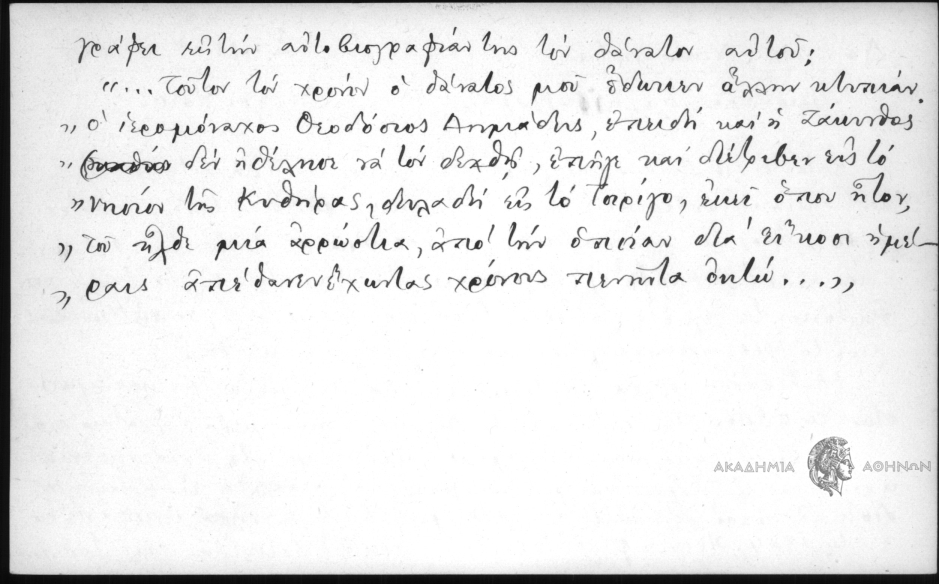 γράφει εἰς τὴν αὐτοβιογραφίαν της τὸν θάνατον αὐτοῦ;
"... Τοῦτον τὸν χρόνον ὁ θάνατος μοῦ ἔδωκεν ἄλλην κτυπιάν.
„ Ὁ ἱερομόναχος Θεοδόσιος Δημιάδης, ἐπειδὴ καὶ ἡ Ζάκυνθος
„ δὲν ἠθέλησε νὰ τὸν δεχθῇ, ἐπῆγε καὶ διέτριβεν εἰς τὸ
„ νησίον τῆς Κυθήρας, δηλαδὴ εἰς τὸ Τσιρίγο, ἐκεῖ ὅπου ἦτον,
„ τοῦ ἦλθε μία ἀρρώστια, ἀπὸ τὴν ὁποίαν διὰ εἴκοσι ἡμέ-
„ ραις ἀπέθανεν ἔχωντας χρόνους πενῆντα ὀκτώ...„
ΑΚΑΔΗΜΙΑ ΑΘΗΝΩΝ